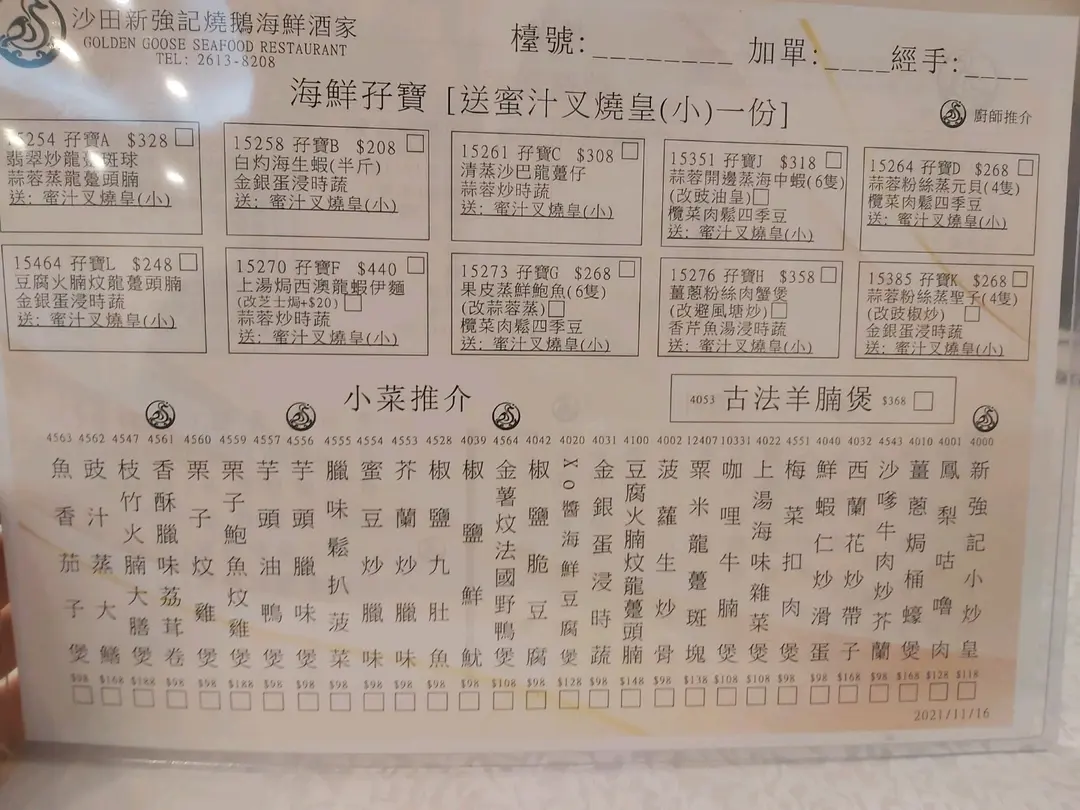 沙田新強記燒鵝海鮮酒家
GOLDEN GOOSE SEAFOOD RESTAURANT
TEL: 2613-8208
檯號:________ 加單:____ 經手:____
海鮮孖寶 [送蜜汁叉燒皇(小)一份]
廚師推介
15254 孖寶A $328
翡翠炒龍躉斑球
蒜蓉蒸龍躉頭腩
送: 蜜汁叉燒皇(小)
15258 孖寶B $208
白灼海生蝦(半斤)
金銀蛋浸時蔬
送: 蜜汁叉燒皇(小)
15261 孖寶C $308
清蒸沙巴龍躉仔
蒜蓉炒時蔬
送: 蜜汁叉燒皇(小)
15351 孖寶J $318
蒜蓉開邊蒸海中蝦(6隻)
(改豉油皇)
欖菜肉鬆四季豆
送: 蜜汁叉燒皇(小)
15264 孖寶D $268
蒜蓉粉絲蒸元貝(4隻)
欖菜肉鬆四季豆
送: 蜜汁叉燒皇(小)
15464 孖寶L $248
豆腐火腩炆龍躉頭腩
金銀蛋浸時蔬
送: 蜜汁叉燒皇(小)
15270 孖寶F $440
上湯焗西澳龍蝦伊麵
(改芝士焗+$20)
蒜蓉炒時蔬
送: 蜜汁叉燒皇(小)
15273 孖寶G $268
果皮蒸鮮鮑魚(6隻)
(改蒜蓉蒸)
欖菜肉鬆四季豆
送: 蜜汁叉燒皇(小)
15276 孖寶H $358
薑蔥粉絲肉蟹煲
(改避風塘炒)
香芹魚湯浸時蔬
送: 蜜汁叉燒皇(小)
15385 孖寶K $268
蒜蓉粉絲蒸聖子(4隻)
(改豉椒炒)
金銀蛋浸時蔬
送: 蜜汁叉燒皇(小)
小菜推介
4053 古法羊腩煲 $368
4000 新強記小炒皇 $118
4001 鳳梨咕嚕肉 $128
4010 薑蔥焗桶蠔煲 $168
4543 沙嗲牛肉炒芥蘭 $98
4032 西蘭花炒帶子 $168
4040 鮮蝦仁炒滑蛋 $98
4551 梅菜扣肉煲 $98
4022 上湯海味雜菜煲 $108
10331 咖哩牛腩煲 $108
12407 粟米龍躉斑塊 $138
4002 菠蘿生炒骨 $98
4100 豆腐火腩炆龍躉頭腩 $148
4031 金銀蛋浸時蔬 $98
4020 XO醬海鮮豆腐煲 $128
4042 椒鹽脆豆腐 $98
4564 金薯炆法國野鴨煲 $108
4039 椒鹽鮮魷 $98
4528 椒鹽九肚魚 $98
4553 芥蘭炒臘味 $98
4554 蜜豆炒臘味 $98
4555 臘味鬆扒菠菜 $98
4556 芋頭臘味煲 $98
4557 芋頭油鴨煲 $98
4559 栗子鮑魚炆雞煲 $188
4560 栗子炆雞煲 $98
4561 香酥臘味荔茸卷 $98
4547 枝竹火腩大膳煲 $188
4562 豉汁蒸大鱔 $168
4563 魚香茄子煲 $98
2021/11/16